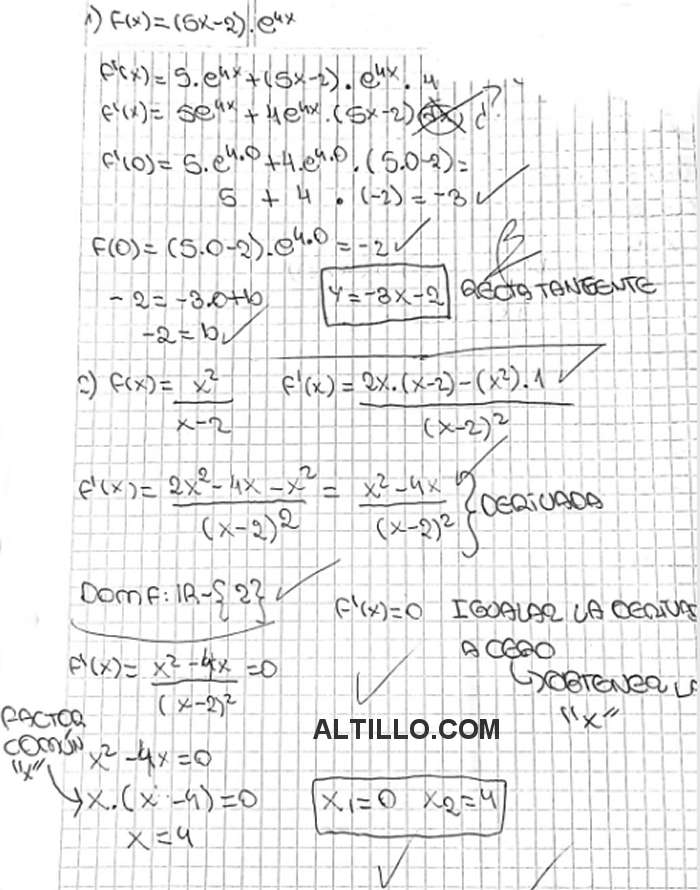 1) F(x)=(5x-2).e^4x
F'(x)= 5.e^4x+(5x-2).e^4x.4
F'(x)= 5e^4x+4e^4x.(5x-2) d?
F'(0)=5.e^4.0+4.e^4.0.(5.0-2)=
5 + 4 . (-2)=-3
F(0)=(5.0-2).e^4.0=-2
-2=-3.0+b
y=-3x-2 RECTA TANGENTE
-2=b
2) F(x)= x²/(x-2) F'(x)= (2x.(x-2)-(x²).1)/(x-2)²
F'(x)= (2x²-4x-x²)/(x-2)² = (x²-4x)/(x-2)² } DERIVADA
DOM F: IR-{2}
F'(x)=0 IGUALAR LA DERIVA
A CERO
↳OBTENER L
"x"
F'(x)= (x²-4x)/(x-2)² =0
ALTILLO.COM
FACTOR
COMÚN
"x"
x²-4x=0
x.(x-4)=0
x=4
x₁=0 x₂=4